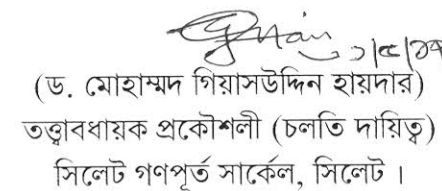 (ড. মোহাম্মদ গিয়াসউদ্দিন হায়দার)
তত্ত্বাবধায়ক প্রকৌশলী (চলতি দায়িত্ব)
সিলেট গণপূর্ত সার্কেল, সিলেট ।